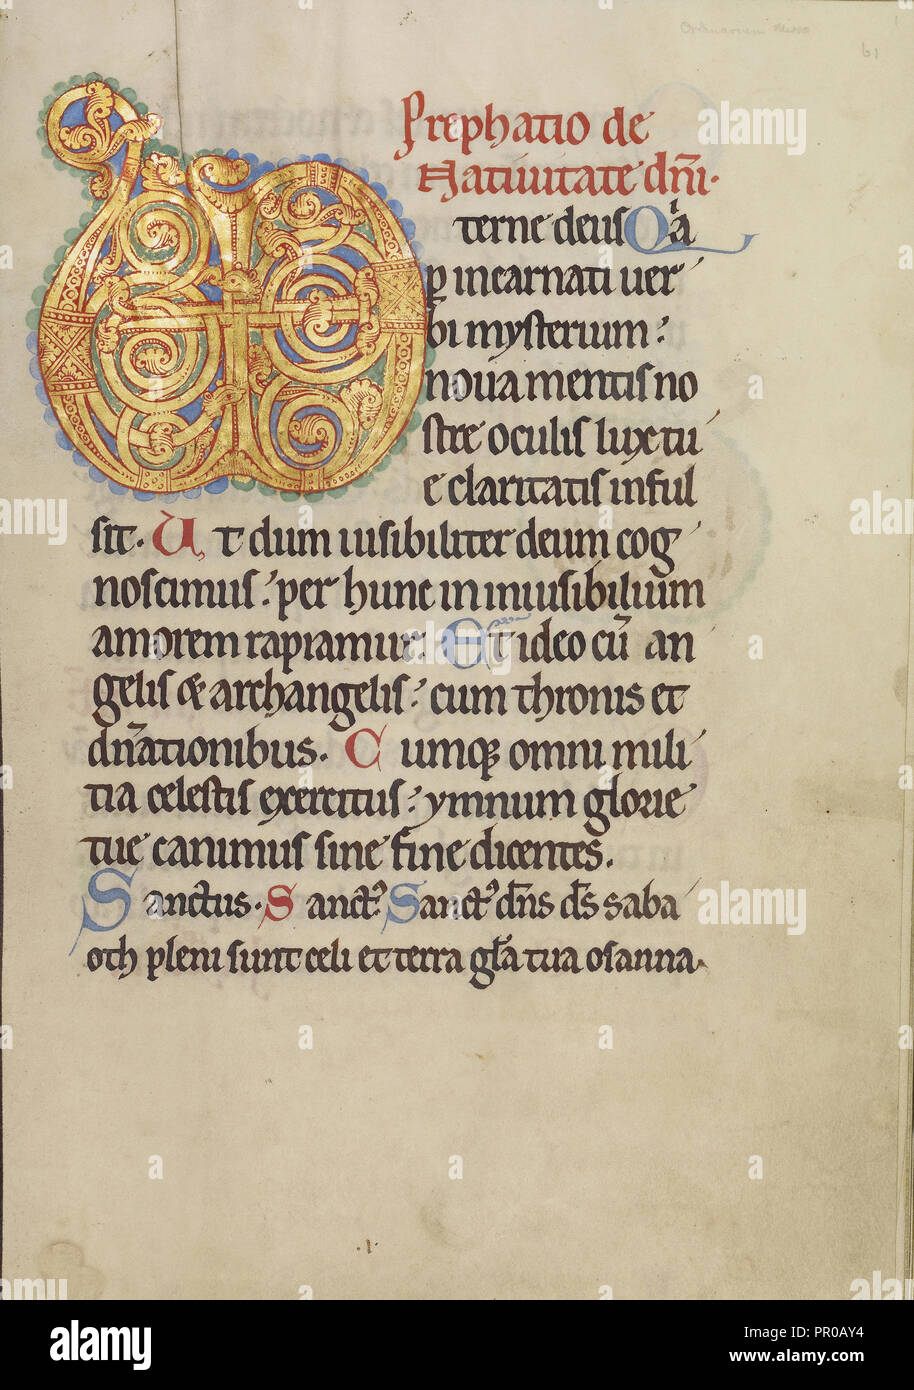 Ordinarium Missae
61
Prephatio de
Natiuitate dñi.
VD
terne deus Qia
p incarnati uer
bi mysterium:
noua mentis no
stre oculis lux tu
e claritatis inful
sit. Ut dum uisibiliter deum cog
noscimus: per hunc in inuisibilium
amorem rapiamur. Et ideo cū an
gelis & archangelis: cum thronis et
dn̄ationibus. Cumq; omni mili
tia celestis exercitus: ymnum glorie
tue canimus sine fine dicentes.
Sanctus. Sanct9 Sanct9 dn̄s ds̄ saba
oth pleni sunt celi et terra gl̄a tua osanna.
.1.
alamy
Image ID: PR0AY4
www.alamy.com